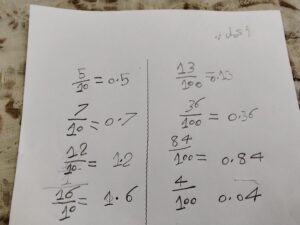 5/10 = 0.5
7/10 = 0.7
12/10 = 1.2
16/10 = 1.6
13/100 = 0.13
36/100 = 0.36
84/100 = 0.84
4/100 0.04